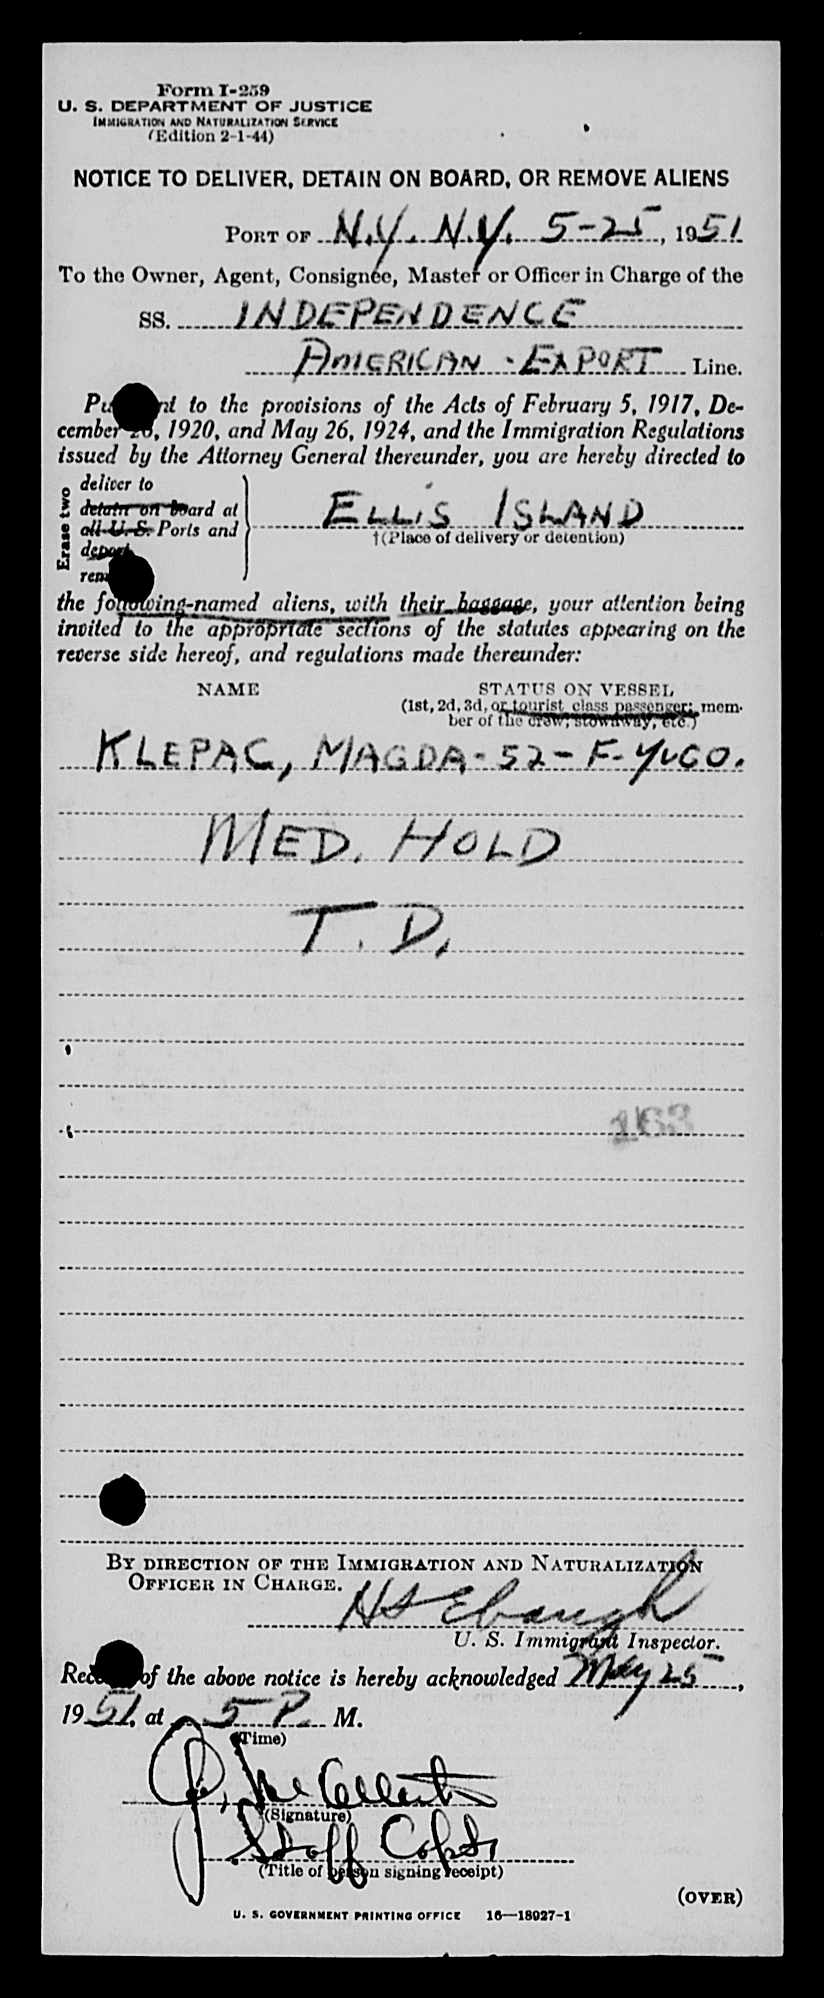 Form I-259
U. S. DEPARTMENT OF JUSTICE
IMMIGRATION AND NATURALIZATION SERVICE
(Edition 2-1-44)
NOTICE TO DELIVER, DETAIN ON BOARD, OR REMOVE ALIENS
PORT OF N.Y. N.Y. 5-25, 1951
To the Owner, Agent, Consignee, Master or Officer in Charge of the
SS. INDEPENDENCE
AMERICAN - EXPORT Line.
to the provisions of the Acts of February 5, 1917, De-
cember 26, 1920, and May 26, 1924, and the Immigration Regulations
issued by the Attorney General thereunder, you are hereby directed to
Erase two
deliver to
detain on board at
all U. S. Ports and
deport
ELLIS ISLAND
†(Place of delivery or detention)
the following-named aliens, with their baggage, your attention being
invited to the appropriate sections of the statutes appearing on the
reverse side hereof, and regulations made thereunder:
NAME STATUS ON VESSEL
(1st, 2d, 3d, or tourist class passenger; mem-
ber of the crew, stowaway, etc.)
KLEPAC, MAGDA - 52 - F - YUGO.
MED. HOLD
T. D.
163
BY DIRECTION OF THE IMMIGRATION AND NATURALIZATION
OFFICER IN CHARGE.
H S Ebaugh
U. S. Immigrant Inspector.
of the above notice is hereby acknowledged May 25,
1951, at 5 P. M.
(Time)
(Signature)
Staff
(Title of person signing receipt)
(OVER)
U. S. GOVERNMENT PRINTING OFFICE 16—18927-1